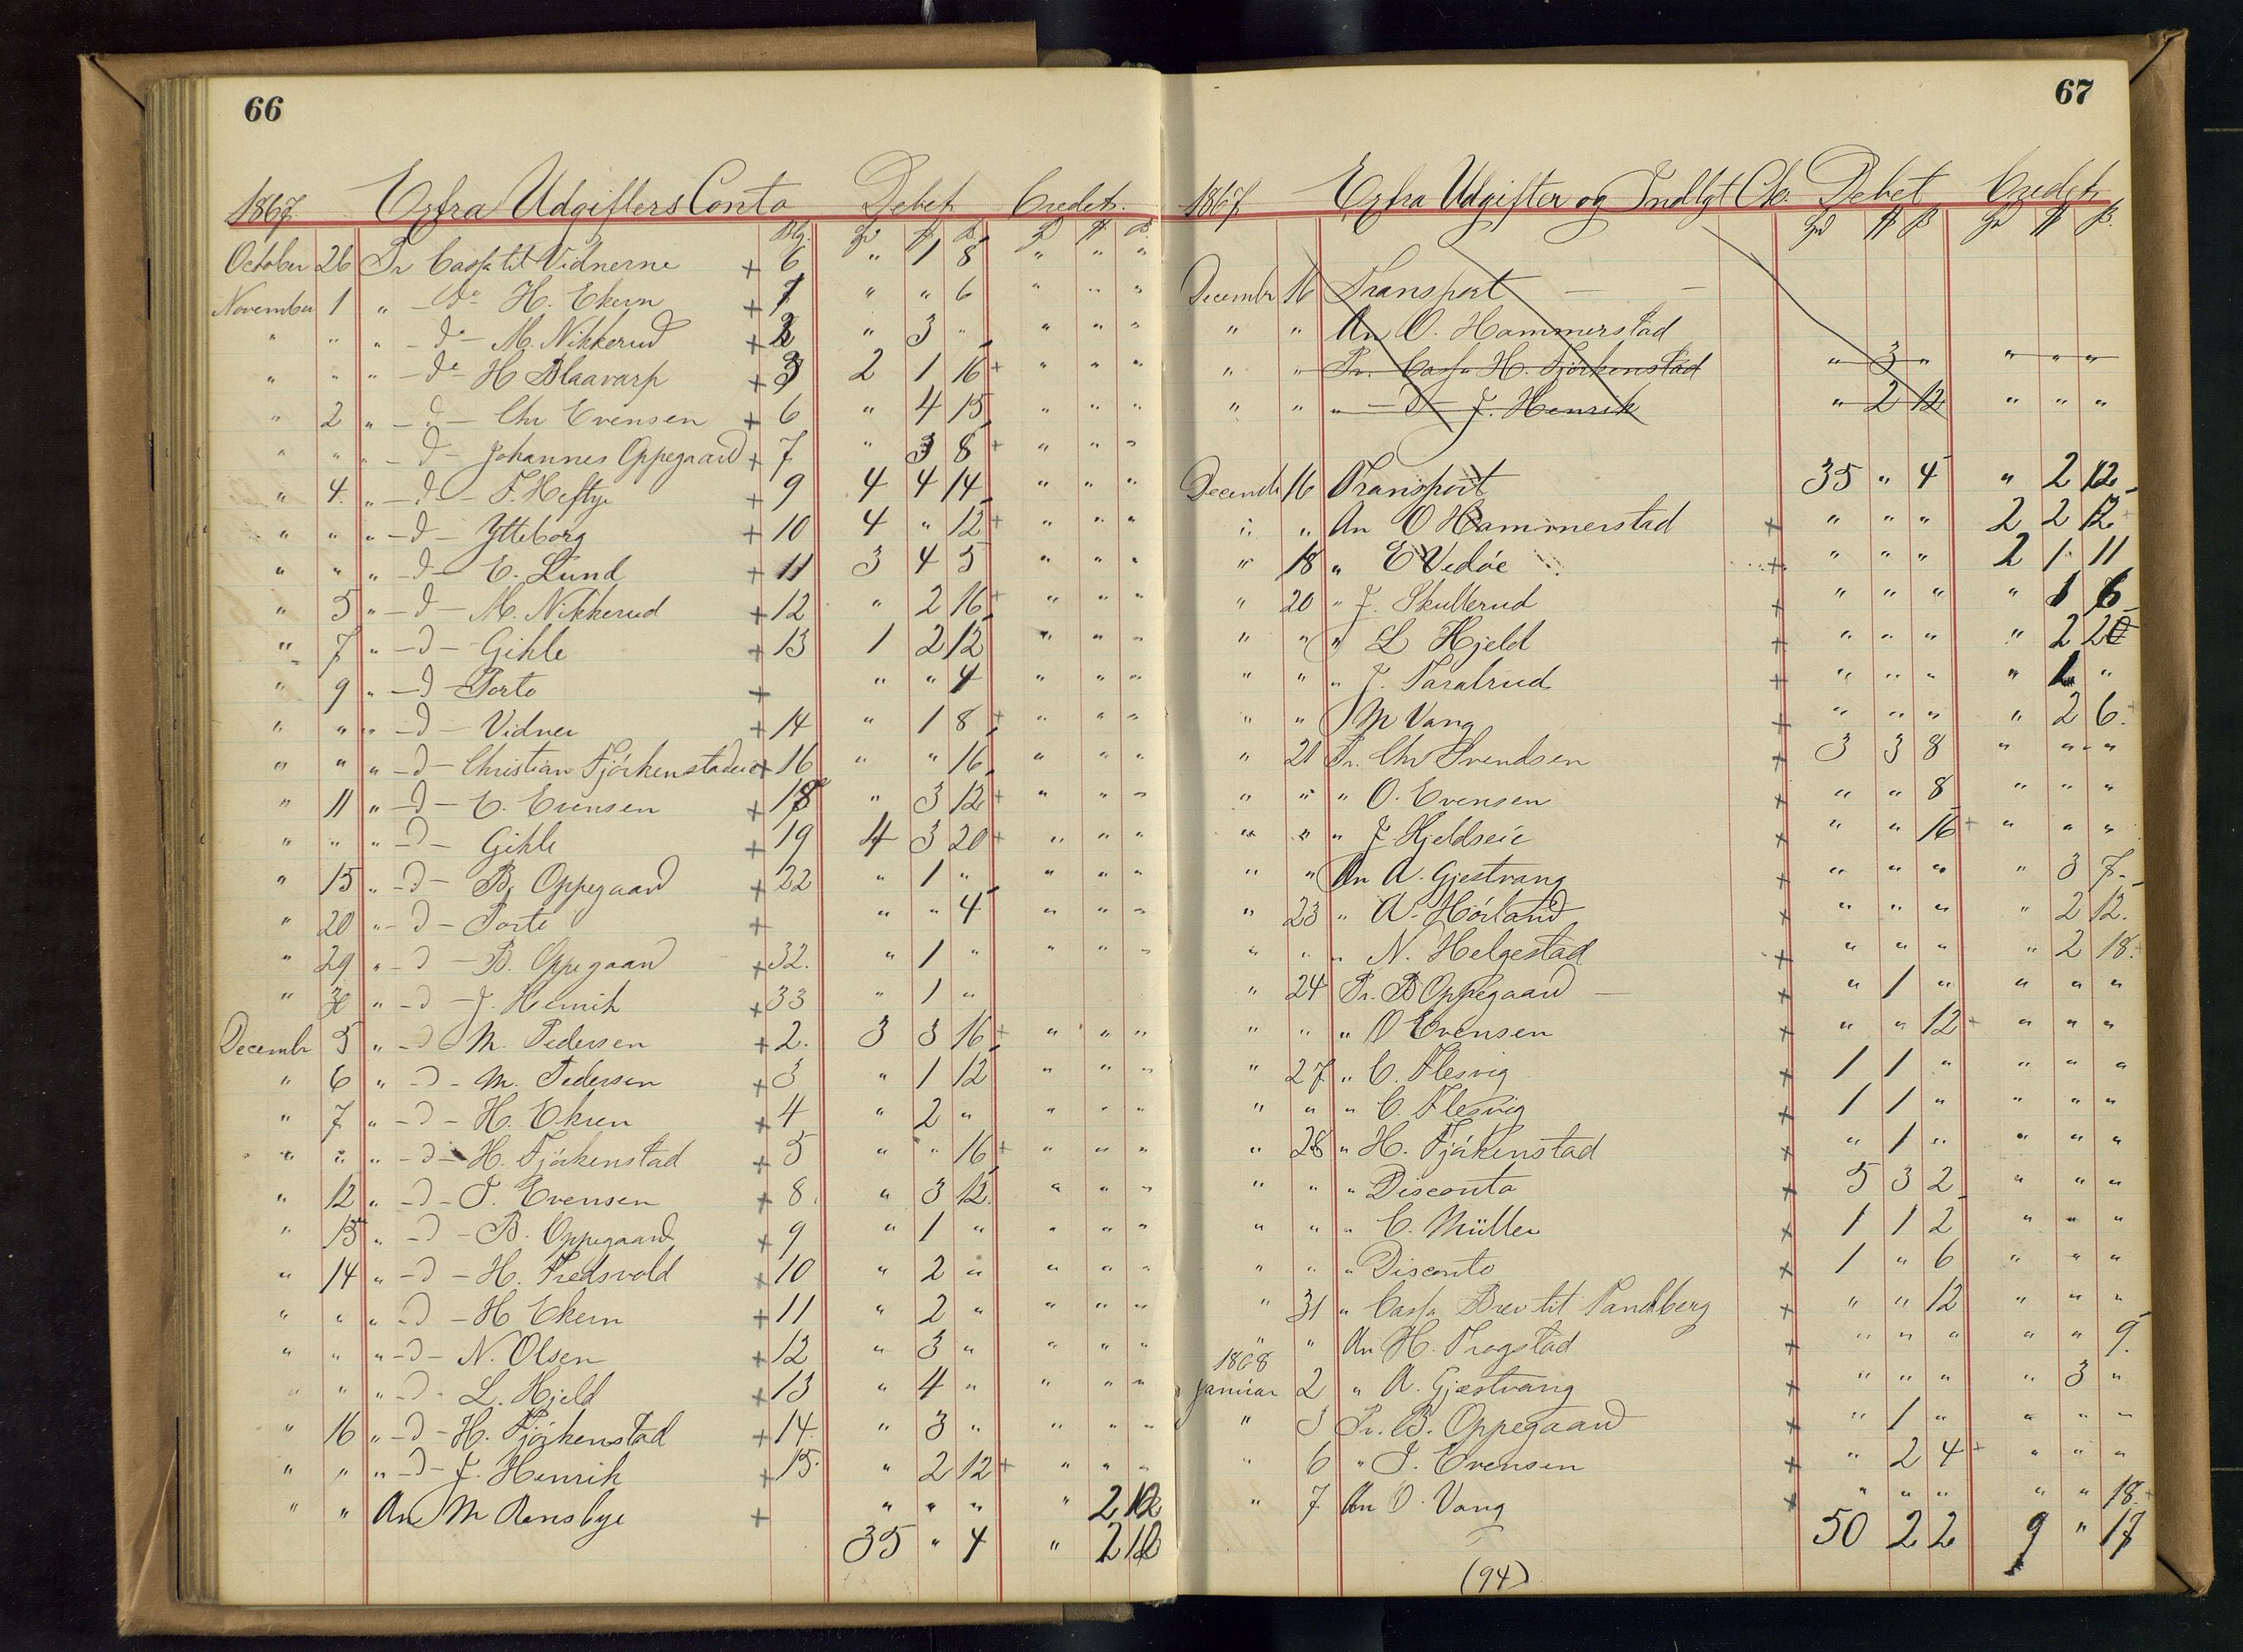 66
1867. Exfra Udgifters Conto Debet Credet.
Blg.
October 26 Pr Cassa til Vidnerne + 6 " 1 8 " " "
November 1 " - do H. Ekern + 1 " " 6 " " "
" " " - d - M. Nikkerud + 2 " 3 " " " "
" " " - do H Blaavarp + 3 2 1 16 + " " "
" 2 " - d - Chr Evensen + 6 " 4 15 " " "
" " " - d - Johannes Oppegaard + 7 " 3 8 + " " "
" 4. " - d - T. Heftye + 9 4 4 14 " " "
" " " - d - Ytteborg + 10 4 " 12 + " " "
" " " - d - E. Lund + 11 3 4 5 " " "
" 5 " - d - M. Nikkerud + 12 " 2 16 + " " "
" 7 " - d - Gihle + 13 1 2 12 " " "
" 9 " - d - Porto + " " 4 " " "
" " " - d - Vidner + 14 " 1 8 + " " "
" " " - d - Christian + 16 " " 16 " " "
" 11 " - d - E. Evensen + 18 " 3 12 + " " "
" " " - d - Gihle + 19 4 3 20 + " " "
" 15 " - d - B. Oppegaard + 22 " 1 " " " "
" 20 " - d - Porto + " " 4 " " "
" 29 " - d - B. Oppegaard + 32. " 1 " " " "
" 30 " - d - J. Henrik + 33 " 1 "
Decembr 5 " - d - M. Pedersen + 2. 3 3 16 + " " "
" 6 " - d - M. Pedersen + 3 " 1 12 " " "
" 7 " - d - H. Ekern + 4 " 2 " " " "
" " " - d - H. Fjörkenstad + 5 " " 16 + " " "
" 12 " - d - T. Evensen + 8. " 3 12. " " "
" 13 " - d - B. Oppegaard + 9 " 1 " " " "
" 14 " - d - H. Fredsvold + 10 " 2 " " " "
" " " - d - H Ekern + 11 " 2 " " " "
" " " - d - N. Olsen + 12 " 3 " " " "
" " " - d - L. Hjeld + 13 " 4 " " " "
" 16 " - d - H. Fjörkenstad + 14. " 3 " " " "
" " " - d - J. Henrik + 15. " 2 12 + " " "
" " An M Rensbye + " " " " 2 12
35 " 4 " 2 12
67
1867 Exfra Udgifter og Indtgt Cto. Debet Credet
Decembr 16 Transport - -
" " An O. Hammerstad
" " Pr. Cassa H. Fjörkenstad " 3 " " " "
" " " - d - J. Henrik " 2 12 " " "
Decembr 16 Transport 35 " 4 " 2 12
" " An O Hammerstad + " " " 2 2 12 +
" 18 " E Vedöe + " " " 2 1 11
" 20 " J. Skullerud + " " " " 1 6
" " " L Hjeld + " " " " 2 20
" " " J. Taralrud + " " " " 1 "
" " " M Vang + " " " " 2 6.
" 21 Pr. Chr Svendsen + 3 3 8 " " "
" " " O. Evensen + " " 8 " " "
" " " J Kjeldseie + " " 16 + " " "
" " An A. Gjestvang + " " " " 3 7.
" 23 " A. Hörland + " " " " 2 12.
" " " N. Helgestad + " " " " 2 18.
" 24 Pr. B Oppegaard - + " 1 " " " "
" " " O Evensen + " " 12 + " " "
" 27 " C. Flesvig + 1 1 " " " "
" " " C. Flesvig + 1 1 " " " "
" 28 " H. Fjörkenstad + " 1 " " " "
" " " Disconto + 5 3 2 " " "
" " " C. Müller + 1 1 2 " " "
" " " Disconto + 1 " 6 " " "
" 31 " Cassa Brev til Sandberg + " " 12 " " "
" " An H. Frogstad + " " " " " 9.
1868
Januar 2 " A. Gjæstvang + " " " " 3 "
" 3 Pr. B. Oppegaard + " 1 " " " "
" 6 " T. Evensen + " 2 4 + " " "
" 7 An O. Vang + " " " " " 18. +
50 2 2 9 " 17
(94)